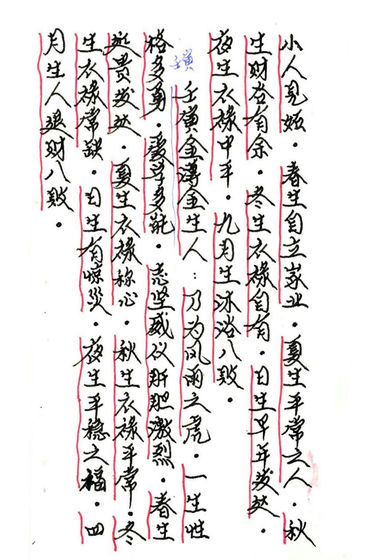 小人见姤。春生自立家业。夏生平常之人。秋
生财谷有余。冬生衣禄自有。日生早年发达。
夜生衣禄中平。九月生沐浴八败。
壬寅
壬寅金薄金生人：乃为风雨之虎。一生性
格多勇。爱学多能。志坚威仪肝胆激烈。春生
贵发达。夏生衣禄称心。秋生衣禄平常。冬
生衣禄常缺。日生有惊災。夜生平稳之福。四
月生人退财八败。